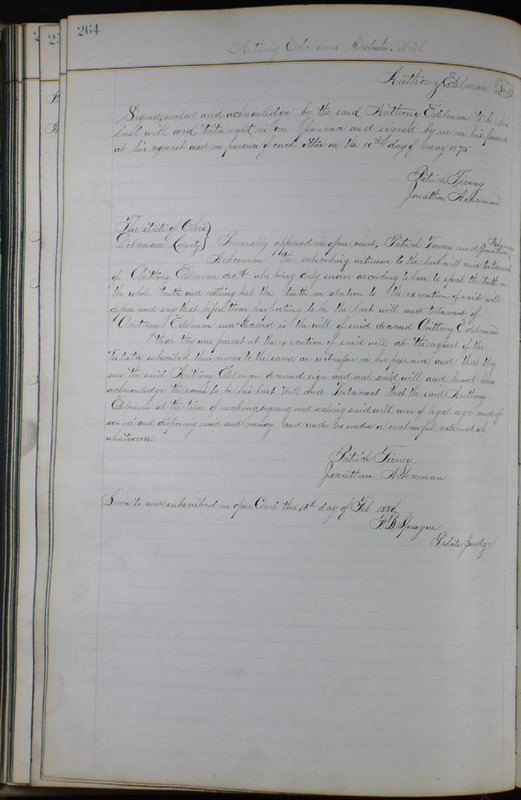 264
Anthony Edelman Probate Will
Anthony Edelman Seal
Signed, sealed and acknowledge by the said Anthony Edelman to be his
last will and testament in our presence and signed by us in his presence
at his request and in presence of each other on the 10th day of May 1875
Patrick Tierney
Jonathan Ackerman
The State of Ohio
Delaware County
Personally appeared in open court, Patrick Tierney and Jonathan
Ackerman the subscribing witnesses to the last will and testament
of Anthony Edelman decd who being duly sworn according to law to speak the truth
the whole truth and nothing but the truth in relation to the execution of said will
depose and say that before them purporting to be the last will and testament of
Anthony Edelman now deceased is the will of said deceased Anthony Edelman
that they were present at the execution of said will at the request of the
testator subscribed their names to the same as witnesses in his presence and that they
saw the said Anthony Edelman deceased sign and seal said will and heard him
acknowledge the same to be his last Will and Testament that the said Anthony
Edelman at the time of making signing and sealing said will was of legal age and of
sound and disposing mind and memory and under no undue or unlawful restraint
whatsoever
Patrick Tierney
Jonathan Ackerman
Sworn to and subscribed in open Court this 18th day of Feb 188
F B Sprague
Probate Judge